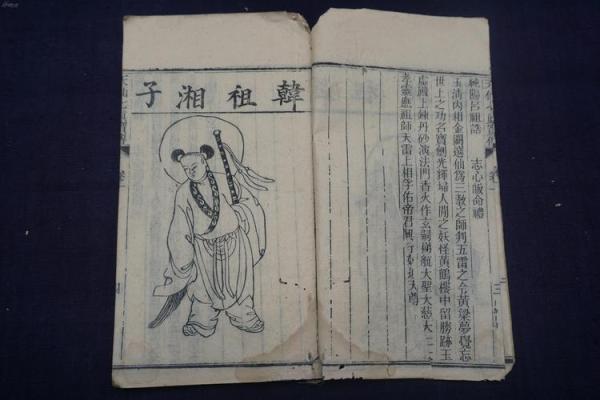 純陽呂祖誥　志心皈命禮
玉清內相金闕選仙爲三教之師判五雷之令黃粱夢覺忘
世上之功名寶劍光輝掃人間之妖怪黃鶴樓中留勝跡玉
虛殿上鍊丹砂演法門香火作玄嗣梯航大聖大慈大
孝靈應祖師天雷上相孚佑帝君興天尊
韓祖湘子